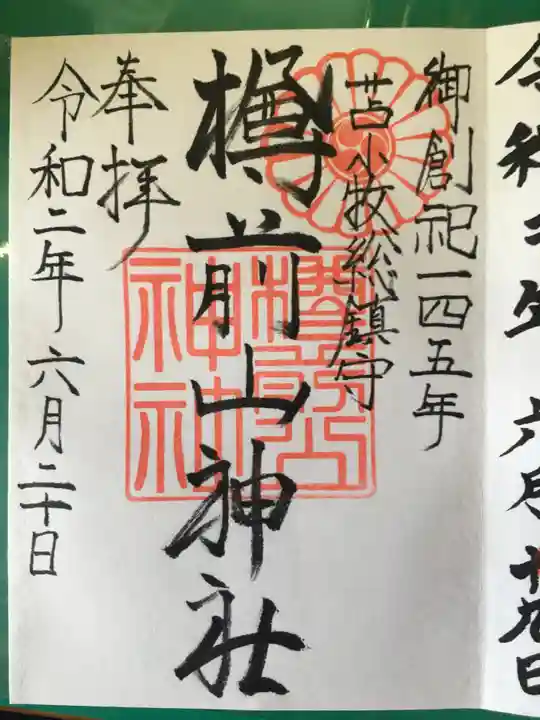 御創祀一四五年
苫小牧総鎮守
樽前山神社
奉拝
令和二年六月二十日
樽前山
神社
令和二年六月十九日